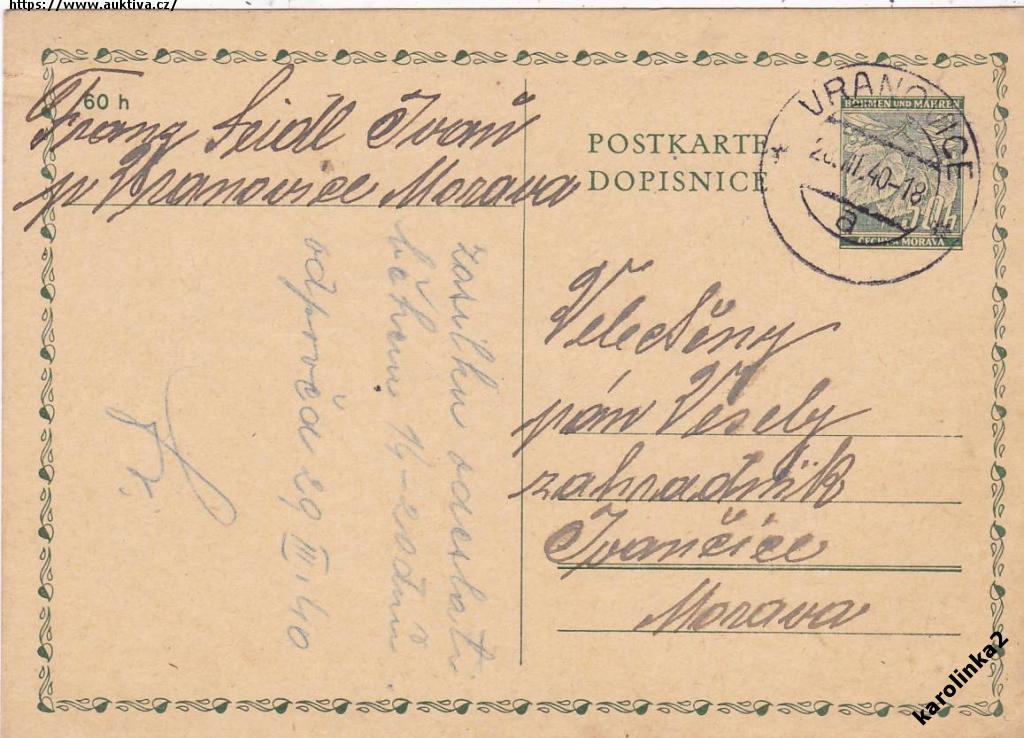 https://www.auktiva.cz/
60 h
Franz Seidl Ivaň
p Vranovice Morava
POSTKARTE
DOPISNICE
BÖHMEN UND MÄHREN
ČECHY A MORAVA
VRANOVICE
III.40-18
a
Velectěný
pán Veselý
zahradník
Ivančice
Morava
zásilku odeslati
během 14-ti dnů
odpověď 29 III. 40
karolinka2